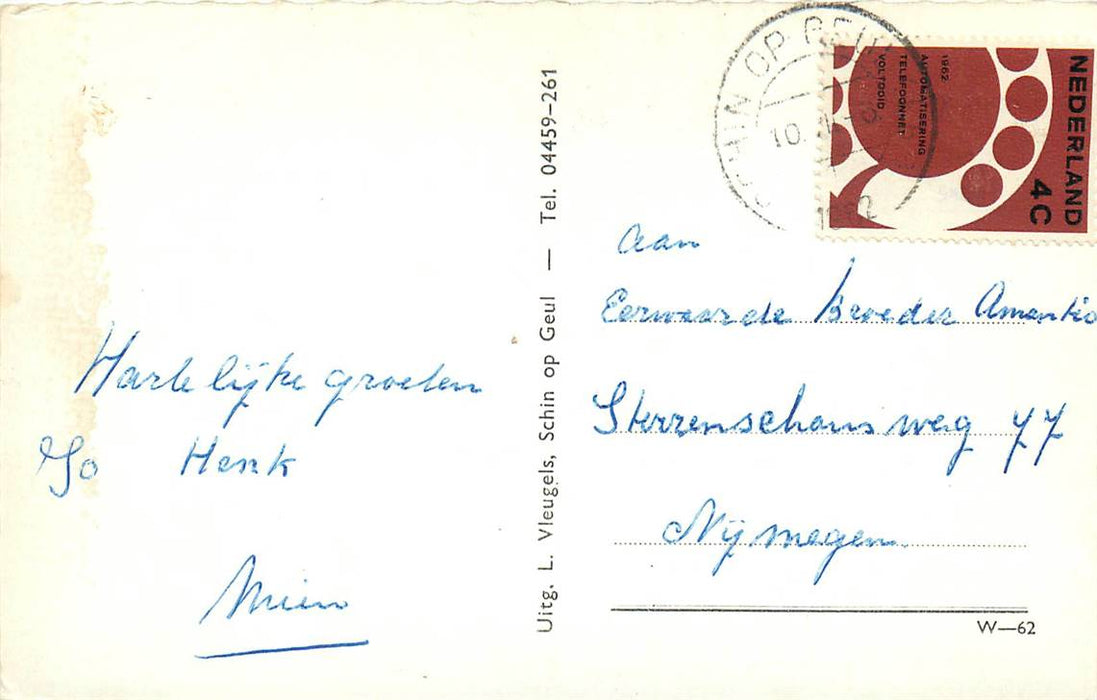 Hartelijke groeten
Jo Henk
Mien
Uitg. L. Vleugels, Schin op Geul — Tel. 04459-261
NEDERLAND
4C
1962
AUTOMATISERING
TELEFOONNET
VOLTOOID
OP
10
1962
Aan
Eerwaarde Broeder Amantio
Sterrenschansweg 77
Nijmegen
W—62